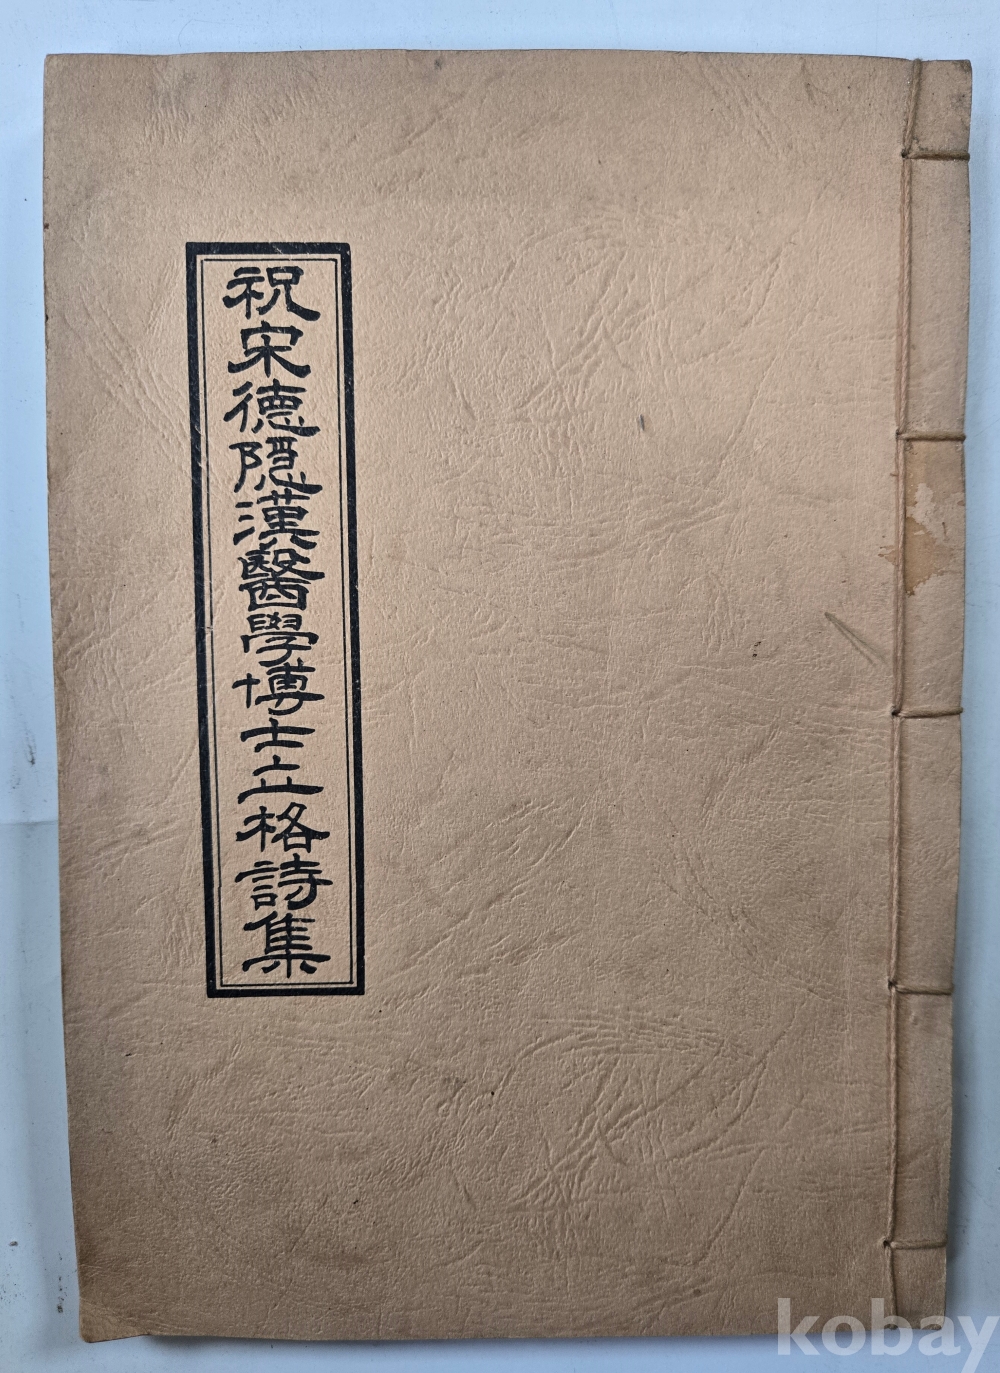 祝宋德隱漢醫學博士立格詩集
kobay